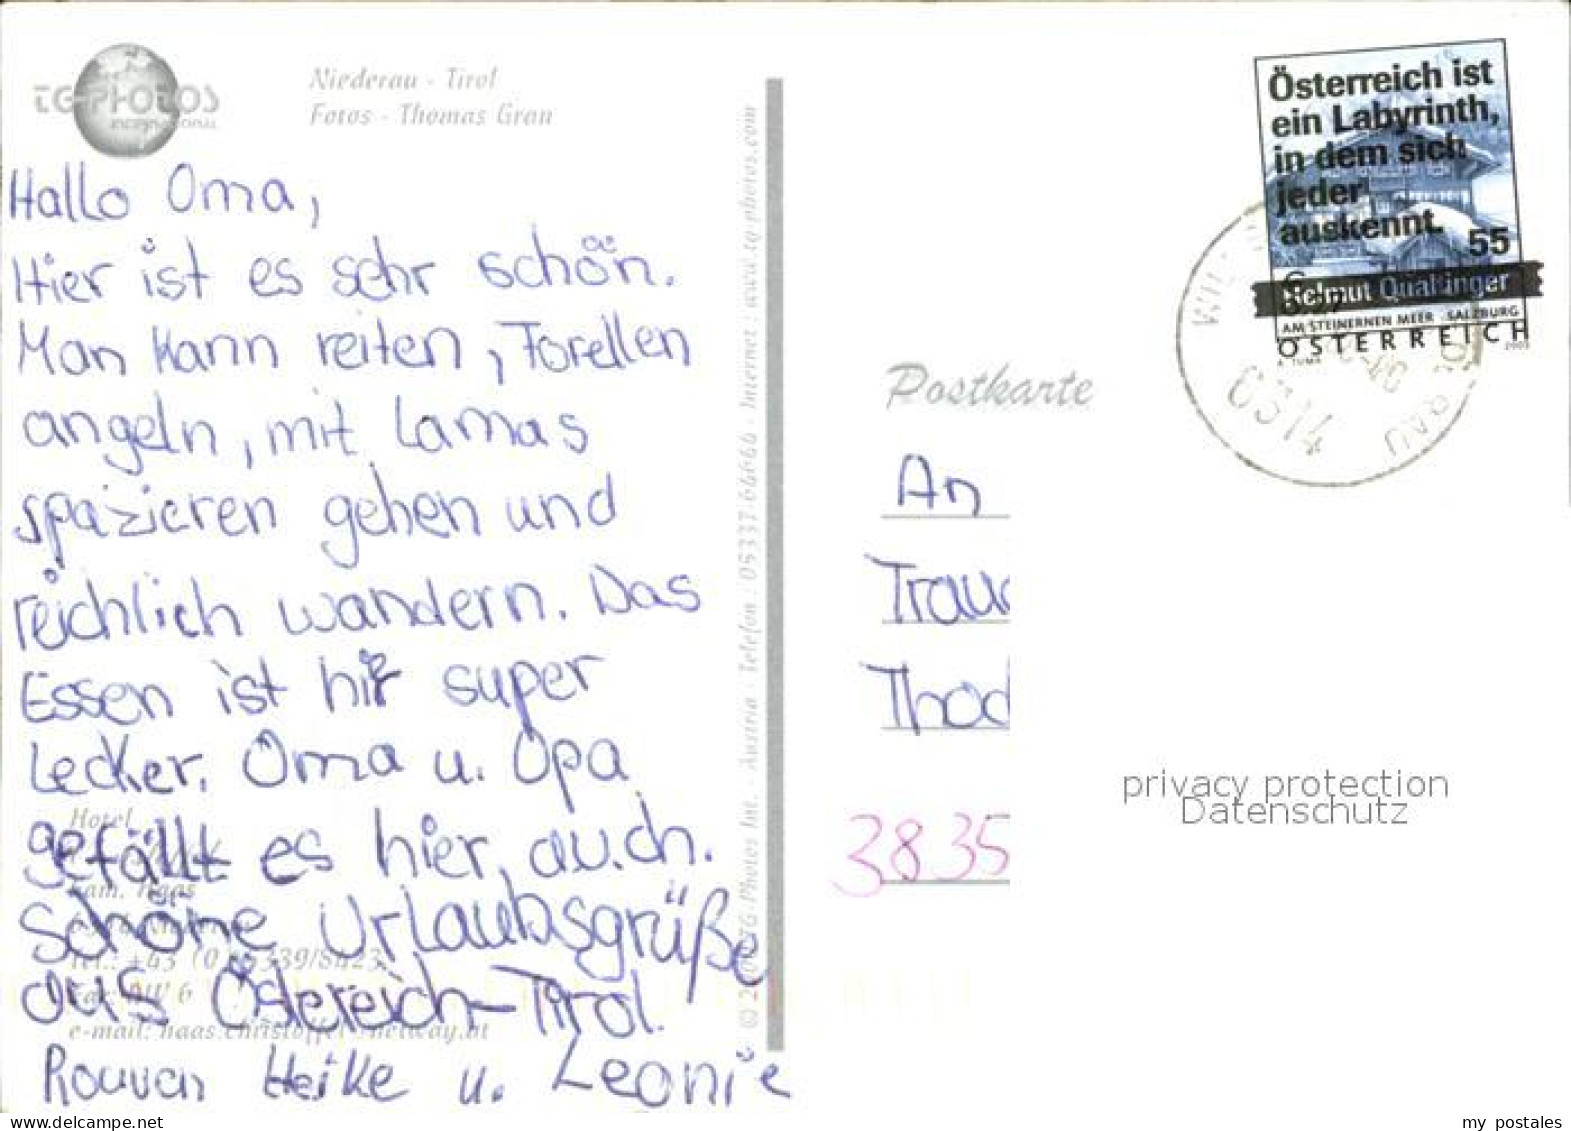 TG-PHOTOS
INTERNATIONAL
Niederau - Tirol
Fotos - Thomas Gran
Hallo Oma,
Hier ist es sehr schön.
Man kann reiten, Forellen
angeln, mit Lamas
spazieren gehen und
reichlich wandern. Das
Essen ist hir super
Lecker. Oma u. Opa
gefällt es hier auch.
schöne Urlaubsgrüße
aus Östereich-Tirol.
Rouven Heike u. Leonie
Hotel
Fam. Haas
Tel.: +43 (0)5339/8423
e-mail: haas.christoffel@netway.at
TG-Photos Int. - Austria - Telefon : 05337-64666 - Internet : www.tg-photos.com
Österreich ist
ein Labyrinth,
in dem sich
jeder
auskennt.
55
Helmut Qualtinger
AM STEINERNEN MEER SALZBURG
ÖSTERREICH
6314
Postkarte
An
Trau
Thod
3835
privacy protection
Datenschutz
delcampe.net
my_postales